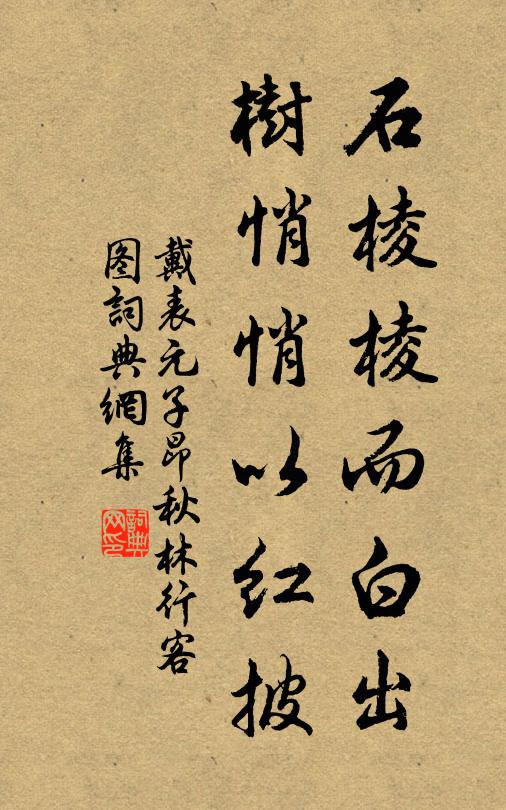 石棱棱而白出
樹悄悄以红披
戴表元子昂秋林行客
图詞典網集
詞典
网印